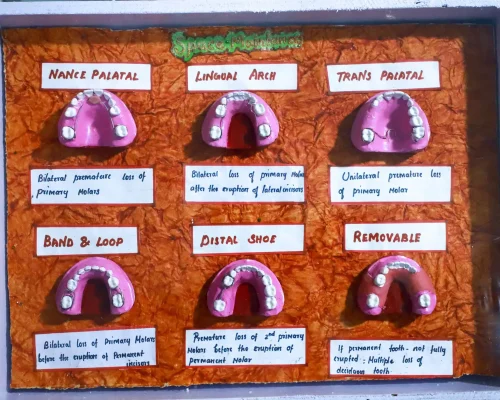 Space Maintainers
NANCE PALATAL
LINGUAL ARCH
TRANS PALATAL
Bilateral premature loss of
primary Molars
Bilateral loss of primary Molars
after the eruption of lateral incisors
Unilateral premature loss
of primary Molar
BAND & LOOP
DISTAL SHOE
REMOVABLE
Bilateral loss of Primary Molars
before the eruption of Permanent
incisors
Premature loss of 2nd primary
Molars before the eruption of
permanent Molar
If permanent tooth - not fully
erupted; Multiple loss of
deciduous tooth